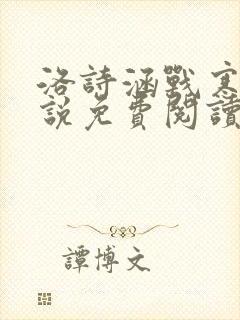 洛詩涵戰寒
說免費閱讀
譚博文